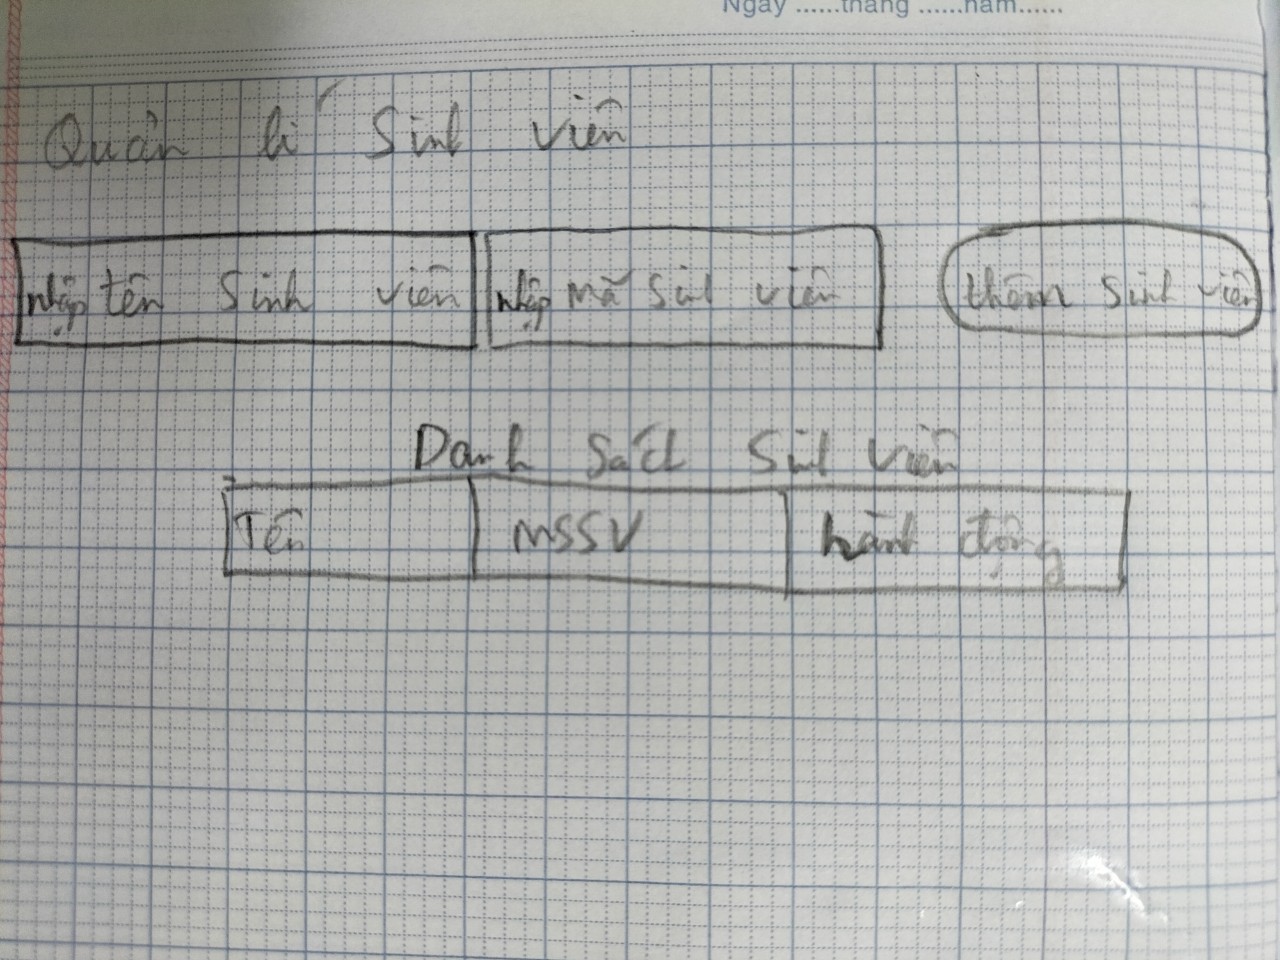 Ngày ......tháng ......năm......
Quản lí Sinh viên
nhập tên Sinh viên nhập mã Sinh viên thêm Sinh viên
Danh Sách Sinh viên
Tên MSSV hành động